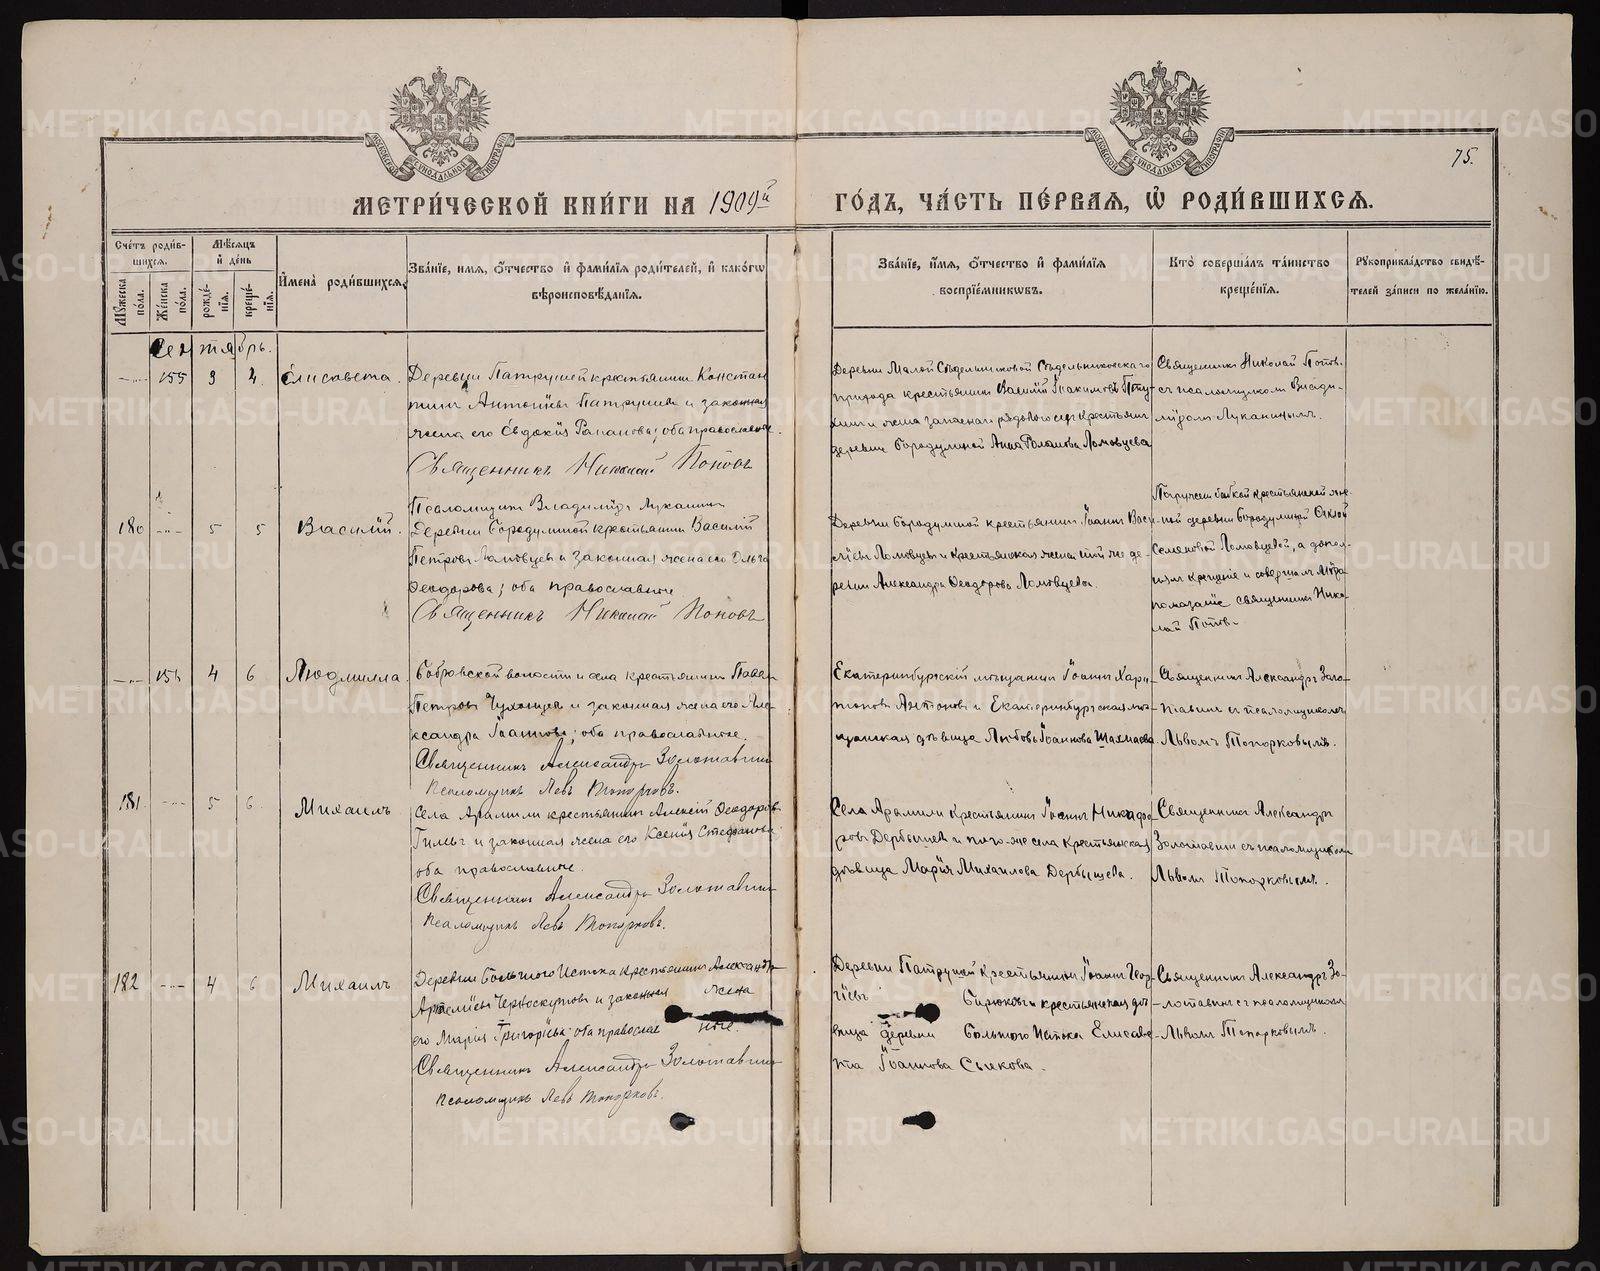 МОСКОВСКОЙ СѴНОДАЛЬНОЙ ТИПОГРАФІИ
МОСКОВСКОЙ СѴНОДАЛЬНОЙ ТИПОГРАФІИ
75.
МЕТРИ́ЧЕСКОЙ КНИ́ГИ НА 1909й
ГО́ДЪ, ЧА́СТЬ ПЕ́РВАЯ, Ѡ РОДИ́ВШИХСЯ.
Сче́тъ роди́в-
шихся.
Мꙋ́жеска по́ла.
Же́нска по́ла.
Мѣ́сяцъ и де́нь
рожде́-нїя.
креще́-нїя.
И҆мена̀ роди́вшихся.
Зва́нїе, имя, ѻ҆́тчество и҆ фами́лїя роди́телей, и҆ како́гѡ
вѣроисповѣ́данїя.
Зва́нїе, и҆́мя, ѻ҆́тчество и҆ фами́лїя
воспрїе́мникѡвъ.
Кто̀ соверша́лъ та́инство
креще́нїя.
Рꙋкоприкла́дство свидѣ́-
телей за́писи по жела́нїю.
Сентябрь.
155 3 4. Елисавета.
Деревни Патрушей крестьянинъ Констан
тинъ Антонїевъ Патрушевъ и законная
жена его Евдокїя Рапанова; оба православные.
Священникъ Николай Поповъ
Псаломщикъ Владимїръ Луканинъ
Деревни Малой Сѣдельниковой Сѣдельниковскаго
прихода крестьянинъ Василїй Іоакимовъ Пету
ховъ и жена запаснаго рядового изъ крестьянъ
деревни Бородулиной Анна Романова Ломовцева
Священникъ Николай Поповъ
съ псаломщикомъ Влади-
мїромъ Луканинымъ.
180 5 5 Василїй.
Деревни Бородулиной крестьянинъ Василїй
Петровъ Ломовцевъ и законная жена его Ольга
Ѳеодорова; оба православные
Священникъ Николай Поповъ
Деревни Бородулиной крестьянинъ Іоаннъ Васи-
лїевъ Ломовцевъ и крестьянская жена той же де
ревни Александра Ѳеодорова Ломовцева.
Погруженъ бабкой крестьянской же-
ной деревни Бородулиной Ѳеклой
Семеновой Ломовцевой, а допол-
нилъ крещенїе и совершилъ мѵро
помазанїе священникъ Нико-
лай Поповъ.
156 4 6 Людмилла.
Бобровской волости и села крестьянинъ Павелъ
Петровъ Чухонцевъ и законная жена его Але
ксандра Іоаннова; оба православные.
Священникъ Александръ Золотавинъ
Псаломщикъ Левъ Топорковъ.
Екатеринбургскїй мѣщанинъ Іоаннъ Хари-
тоновъ Антоновъ и Екатеринбургская мѣ-
щанская дѣвица Любовь Іоаннова Шахмаева
Священникъ Александръ Золо-
тавинъ съ псаломщикомъ
Львомъ Топорковымъ.
181 5 6 Михаилъ
Села Арамили крестьянинъ Алексїй Ѳеодоровъ
Гилевъ и законная жена его Ксенїя Стефанова
оба православные.
Священникъ Александръ Золотавинъ
Псаломщикъ Левъ Топорковъ.
Села Арамили крестьянинъ Іоаннъ Никифо
ровъ Дербышевъ и того-же села крестьянская
дѣвица Марїя Михаилова Дербышева.
Священникъ Александръ
Золотавинъ съ псаломщикомъ
Львомъ Топорковымъ.
182 4 6 Михаилъ
Деревни Большого Истока крестьянинъ Александръ
Артемїевъ Червоскутовъ и законная жена
его Марїя Григорїева: оба православ ные.
Священникъ Александръ Золотавинъ
Псаломщикъ Левъ Топорковъ.
Деревни Патрушей крестьянинъ Іоаннъ Геор
гїевъ Бирюковъ и крестьянская дѣ
вица деревни Большого Истока Елисаве
та Іоаннова Сычкова.
Священникъ Александръ Зо-
лотавинъ съ псаломщикомъ
Львомъ Топорковымъ.
METRIKI.GASO-URAL.RU